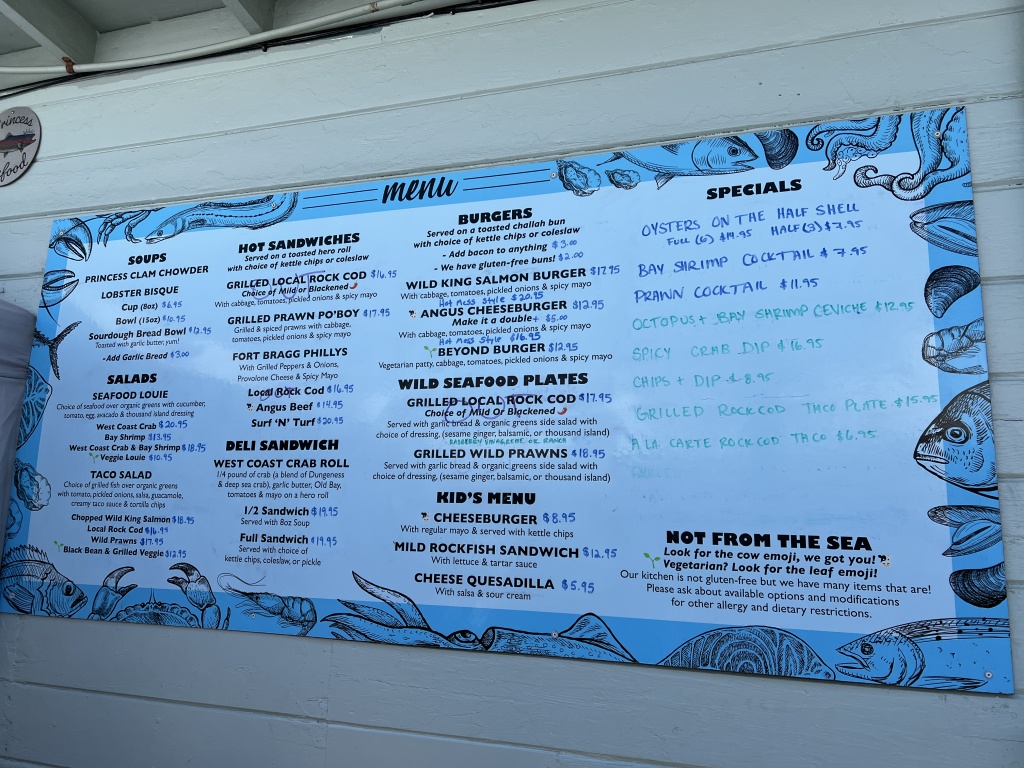 Princess
Seafood
menu
SOUPS
PRINCESS CLAM CHOWDER
LOBSTER BISQUE
Cup (8oz) $6.95
Bowl (15oz) $10.95
Sourdough Bread Bowl $12.95
Toasted with garlic butter, yum!
-Add Garlic Bread $3.00
SALADS
SEAFOOD LOUIE
Choice of seafood over organic greens with cucumber,
tomato, egg, avocado & thousand island dressing
West Coast Crab $20.95
Bay Shrimp $13.95
West Coast Crab & Bay Shrimp $18.95
Veggie Louie $10.95
TACO SALAD
Choice of grilled fish over organic greens
with tomato, pickled onions, salsa, guacamole,
creamy taco sauce & tortilla chips
Chopped Wild King Salmon $18.95
Local Rock Cod $16.95
Wild Prawns $17.95
Black Bean & Grilled Veggie $12.95
HOT SANDWICHES
Served on a toasted hero roll
with choice of kettle chips or coleslaw
GRILLED LOCAL ROCK COD $16.95
Choice of Mild or Blackened
With cabbage, tomatoes, pickled onions & spicy mayo
GRILLED PRAWN PO'BOY $17.95
Grilled & spiced prawns with cabbage,
tomatoes, pickled onions & spicy mayo
FORT BRAGG PHILLYS
With Grilled Peppers & Onions,
Provolone Cheese & Spicy Mayo
Local Rock Cod $16.95
Angus Beef $14.95
Surf 'N' Turf $20.95
DELI SANDWICH
WEST COAST CRAB ROLL
1/4 pound of crab (a blend of Dungeness
& deep sea crab), garlic butter, Old Bay,
tomatoes & mayo on a hero roll
1/2 Sandwich $19.95
Served with 8oz Soup
Full Sandwich $19.95
Served with choice of
kettle chips, coleslaw, or pickle
BURGERS
Served on a toasted challah bun
with choice of kettle chips or coleslaw
- Add bacon to anything $3.00
- We have gluten-free buns! $2.00
WILD KING SALMON BURGER $17.95
With cabbage, tomatoes, pickled onions & spicy mayo
Hot Mess Style $20.95
ANGUS CHEESEBURGER $12.95
Make it a double + $5.00
With cabbage, tomatoes, pickled onions & spicy mayo
Hot Mess Style $16.95
BEYOND BURGER $12.95
Vegetarian patty, cabbage, tomatoes, pickled onions & spicy mayo
WILD SEAFOOD PLATES
GRILLED LOCAL ROCK COD $17.95
Choice of Mild Or Blackened
Served with garlic bread & organic greens side salad with
choice of dressing, (sesame ginger, balsamic, or thousand island)
RASBERRY VINAGRETTE OR RANCH
GRILLED WILD PRAWNS $18.95
Served with garlic bread & organic greens side salad with
choice of dressing, (sesame ginger, balsamic, or thousand island)
KID'S MENU
CHEESEBURGER $8.95
With regular mayo & served with kettle chips
MILD ROCKFISH SANDWICH $12.95
With lettuce & tartar sauce
CHEESE QUESADILLA $5.95
With salsa & sour cream
SPECIALS
OYSTERS ON THE HALF SHELL
FULL (6) $14.95 HALF (3) $7.95
BAY SHRIMP COCKTAIL $7.95
PRAWN COCKTAIL $11.95
OCTOPUS + BAY SHRIMP CEVICHE $12.95
SPICY CRAB DIP $16.95
CHIPS + DIP $8.95
GRILLED ROCKCOD TACO PLATE $15.95
A LA CARTE ROCKCOD TACO $6.95
NOT FROM THE SEA
Look for the cow emoji, we got you!
Vegetarian? Look for the leaf emoji!
Our kitchen is not gluten-free but we have many items that are!
Please ask about available options and modifications
for other allergy and dietary restrictions.